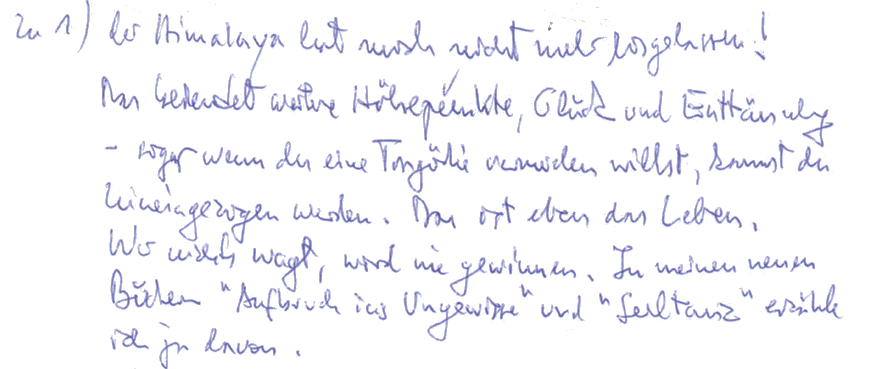 Zu 1) Der Himalaya hat mich nicht mehr losgelassen!
Das bedeutet weitere Höhepunkte, Glück und Enttäuschung
- sogar wenn du eine Tragödie vermeiden willst, kannst du
hineingezogen werden. Das ist eben das Leben.
Wer nichts wagt, wird nie gewinnen. In meinen neuen
Büchern "Aufbruch ins Ungewisse" und "Seiltanz" erzähle
ich ja davon.